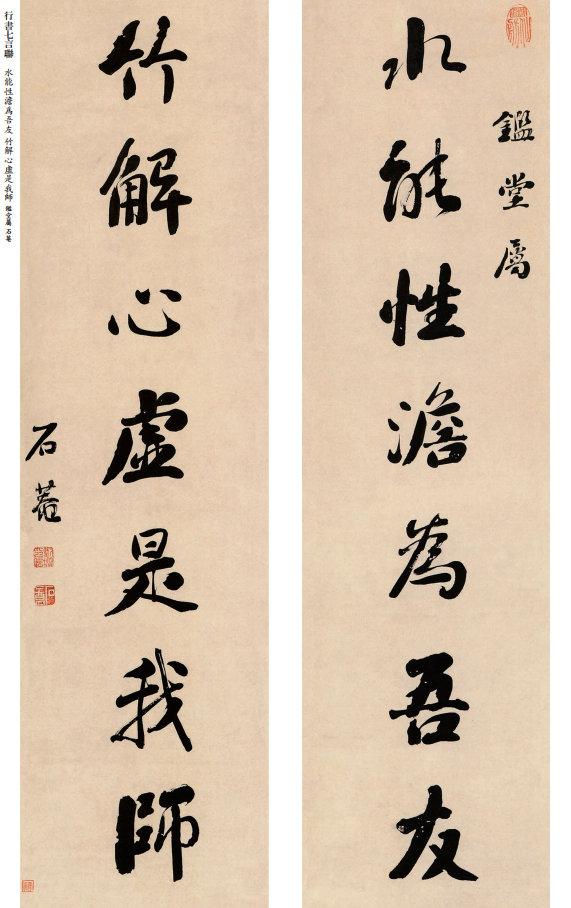 鑑堂屬
水能性澹為吾友
竹解心虛是我師
石菴
行書七言聯 水能性澹為吾友 竹解心虛是我師 鑑堂屬 石菴